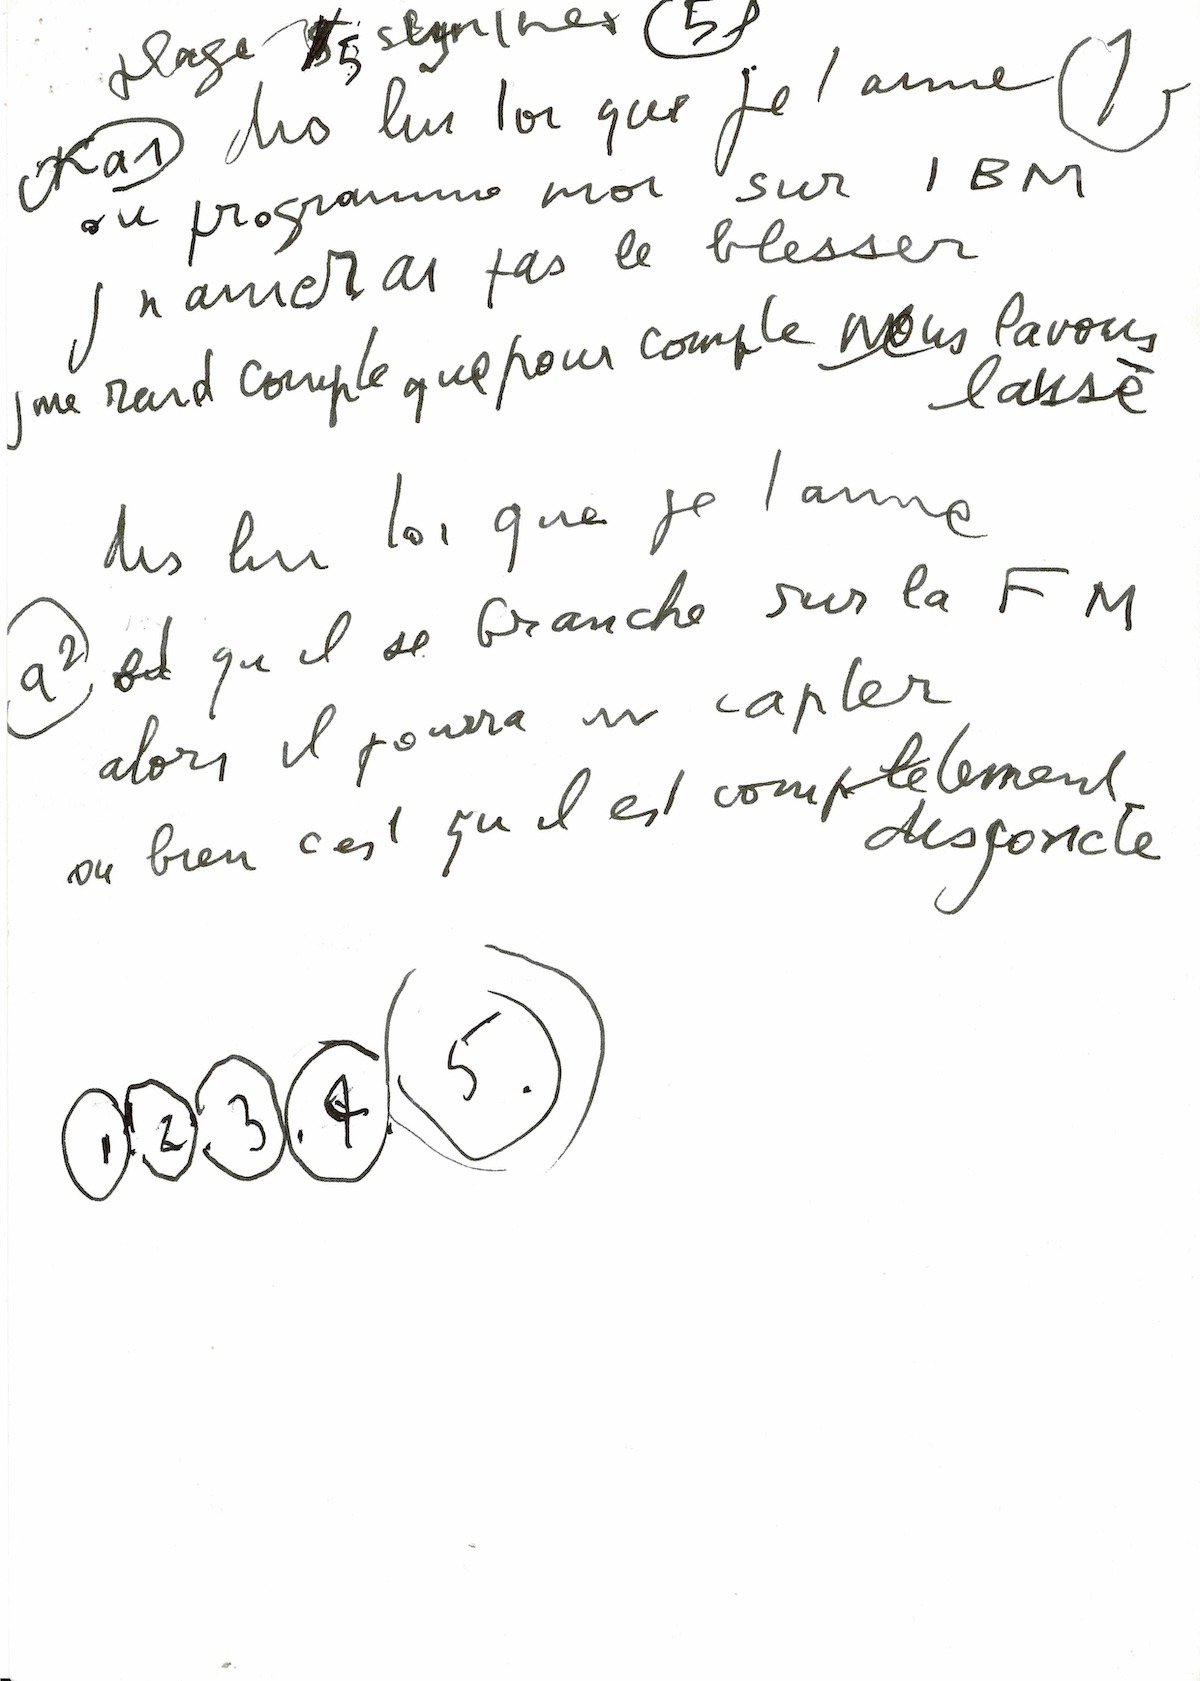 plage 5 5f
Ka1 dis lui toi que je l'aime 1
ou programme moi sur IBM
j n aimerai pas le blesser
j me rend compte que pour compte nous l'avons
laissé
dis lui toi que je l'aime
a2 et qu il se branche sur la FM
alors il pourra m capter
ou bien c'est qu il est complètement
disjoncté
1 2 3 4 5